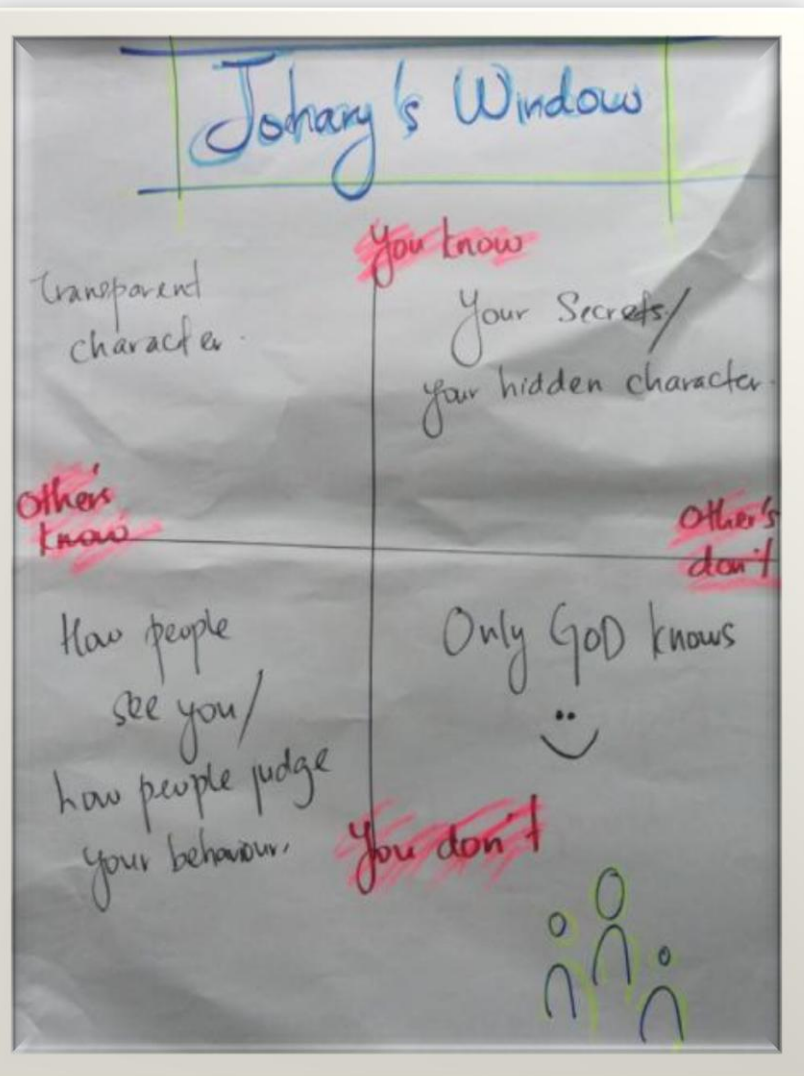 Johary's Window
You know
Transparent
character.
Your Secrets/
your hidden character.
Other's
know
Other's
don't
How people
see you/
how people judge
your behaviour.
Only GOD knows
You don't